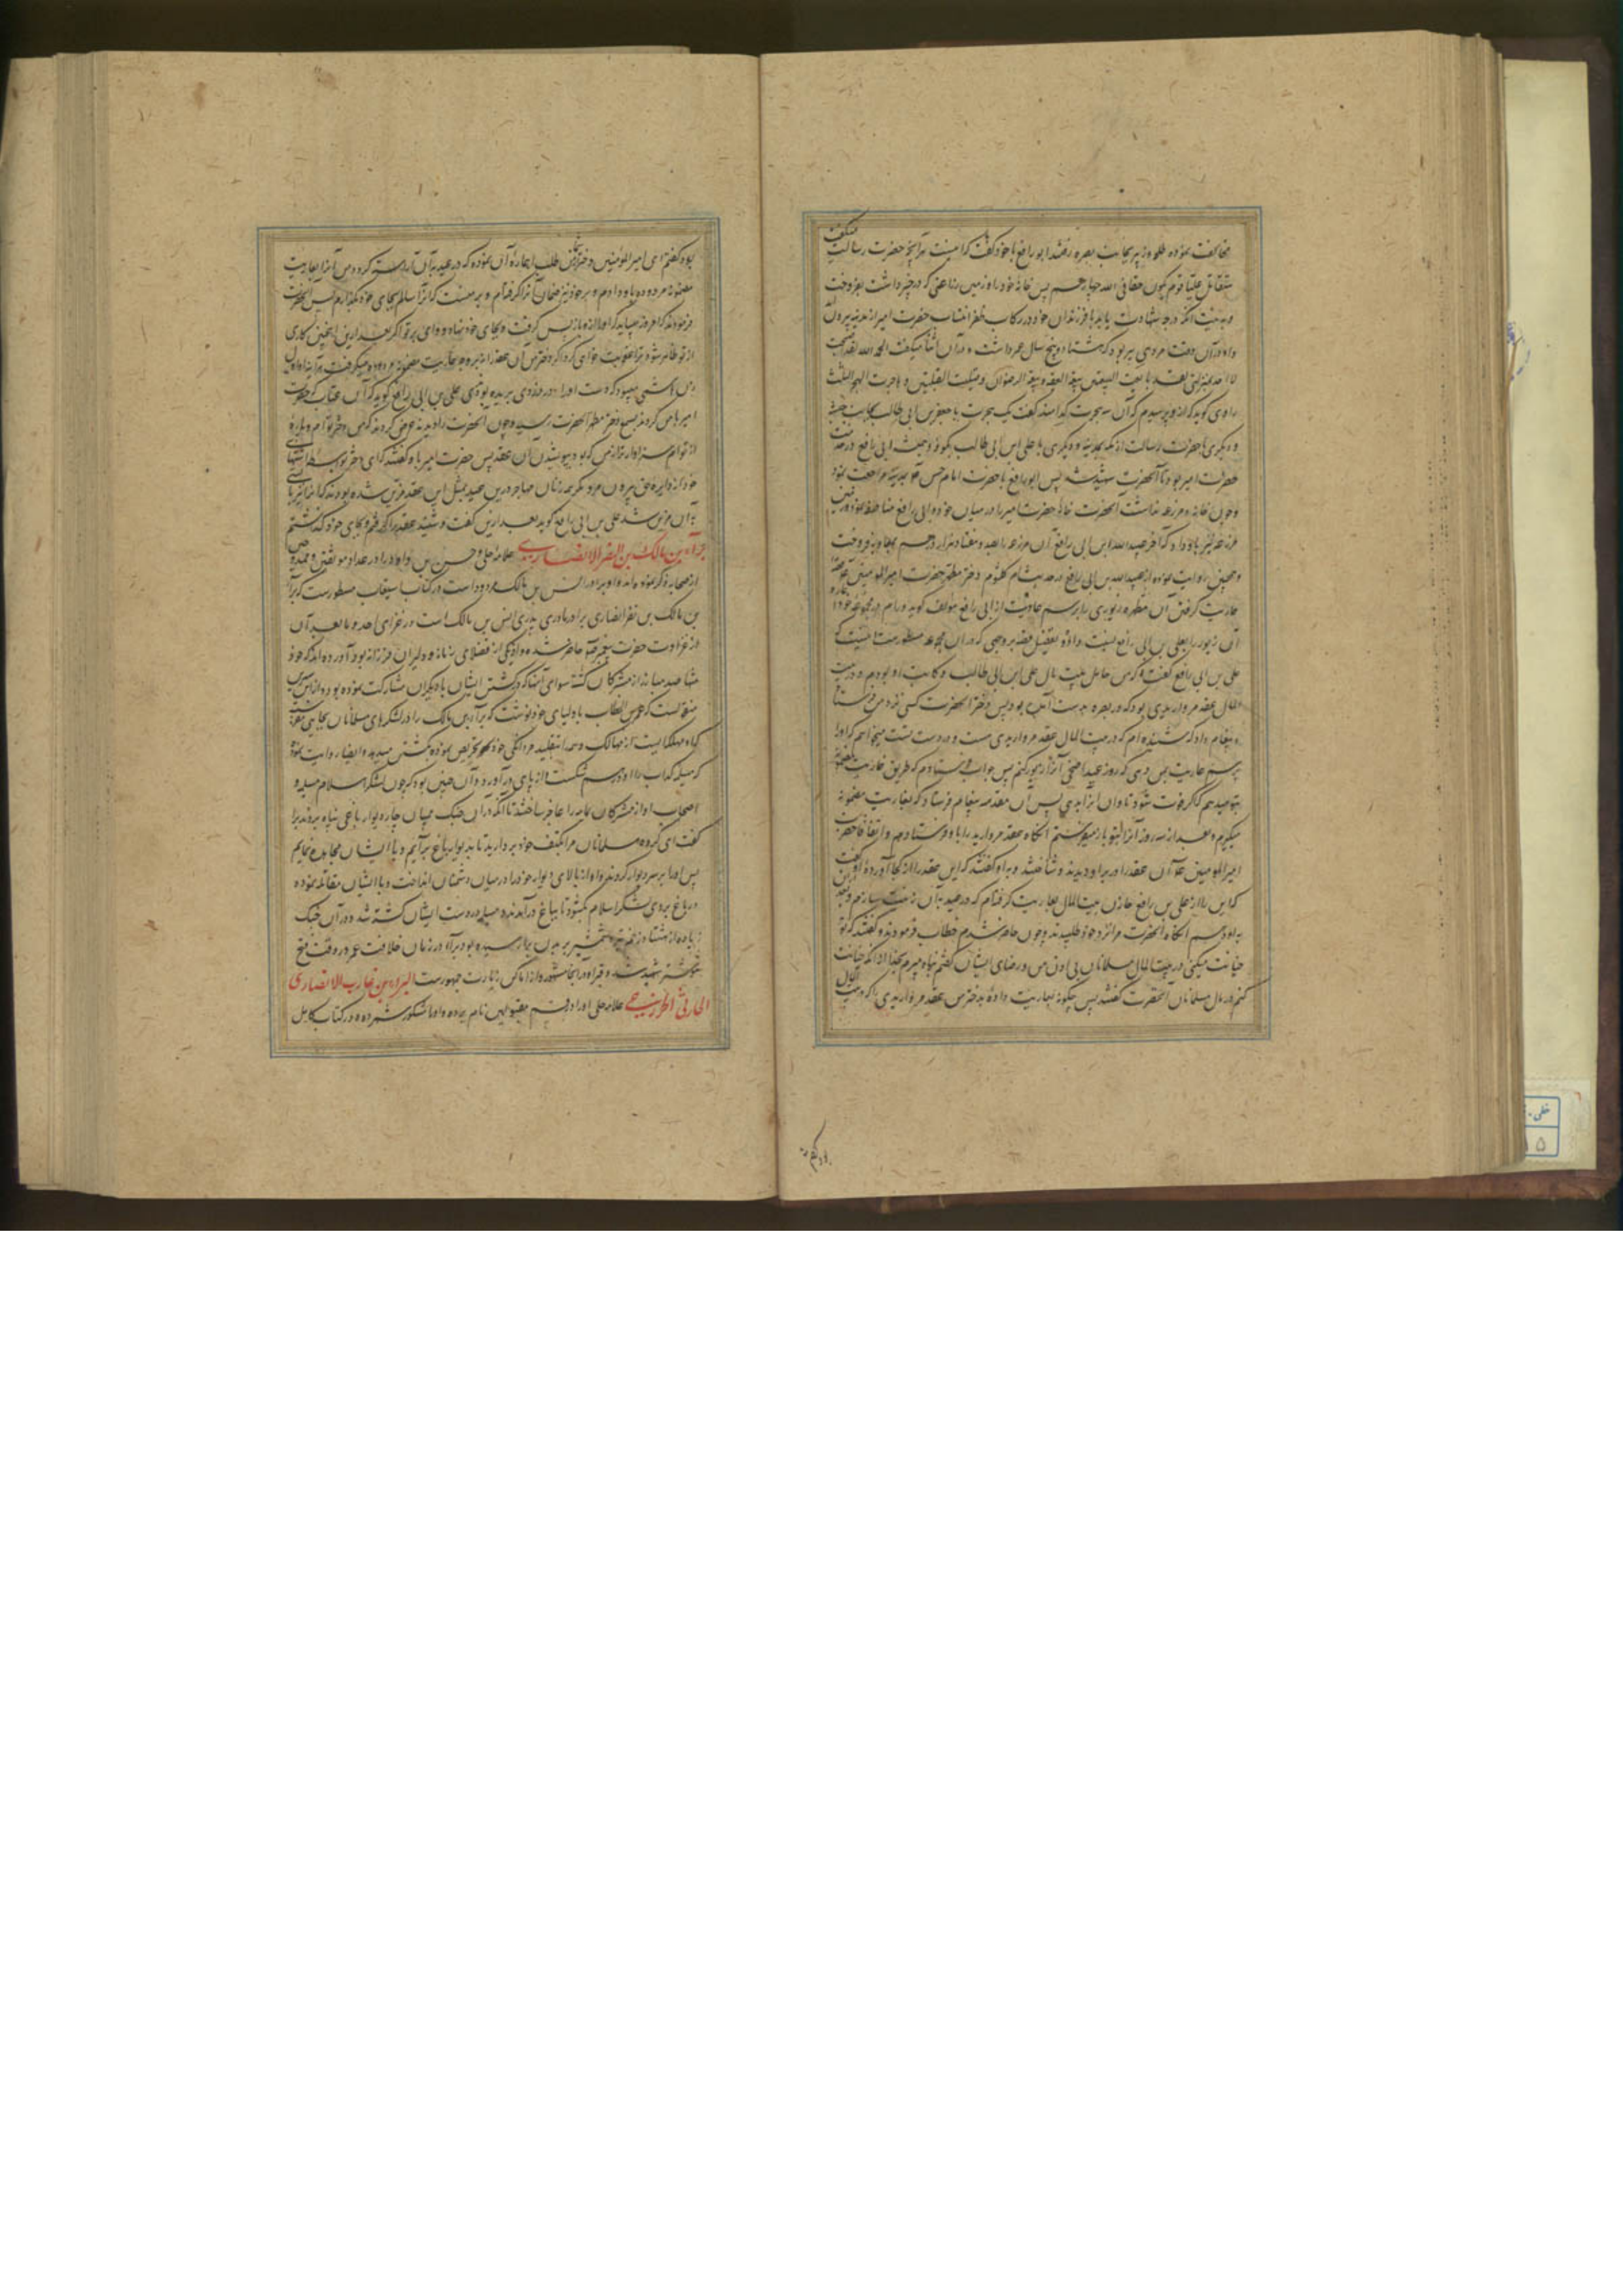 مخالفت نموده طلحه و زبیر بجانب بصره رفتند ابو رافع با خود گفت که اینست مر آنچه حضرت رسالت میگفت
ستقاتل علیا قوم یکون حقا فی الله جهادهم پس خانه خود را و زمین زراعتی که در خیبر داشت بفروخت
درجه شهادت یابد با فرزندان خود در رکاب ظفر انتساب حضرت امیر از مدینه بیرون
و او در آن وقت مردی پیر بود که هشتاد و پنج سال عمر داشت و در آن اثنا میگفت الحمد لله لقد اصبحت
لا احد بمنزلتی لقد بایعت البیعتین بیعة العقبه و بیعة الرضوان و صلیت القبلتین و هاجرت الهجر الثلث
راوی گوید که از او پرسیدم که آن سه هجرت کدامند گفت یک هجرت با جعفر بن ابی طالب بجانب حبشه
و دیگری با حضرت رسالت از مکه بمدینه و دیگری با علی ابن ابی طالب بکوفه و همیشه ابی رافع در خدمت
حضرت امیر بود تا آنحضرت شهید شد پس ابو رافع با حضرت امام حسن بمدینه مراجعت نمود
و چون خانه و مزرعه نداشت آنحضرت خانه حضرت امیر را در میان خود و ابی رافع مناصفه نمود و زمین
مزرعه نیز باو داد که آخر عبید الله ابن ابی رافع آن مزرعه را بصد و هفتاد هزار درهم بمعاویه فروخت
و همچنین روایت نموده از عبید الله بن ابی رافع در حدیث ام کلثوم دختر مطهر حضرت امیر المومنین
عاریت گرفتن آن مطهره زیوری را برسم عاریت از ابی رافع مؤلف گوید ورام در مجموعه خود
آن زیور را بعلی بن ابی رافع نسبت داده و تفصیل قصه بر وجهی که در آن مجموعه مسطور است اینست که
علی بن ابی رافع گفت که من حامل بیت مال علی ابن ابی طالب و کاتب او بودم و در بیت
المال عقد مرواریدی بود که در بصره بدست آمده بود پس دختر آنحضرت کسی نزد من فرستاد
و پیغام داد که شنیده‌ام که در بیت المال عقد مرواریدی هست و در دست تست میخواهم که او را
برسم عاریت بمن دهی که روز عید اضحی آنرا زیور کنم پس جواب فرستادم که طریق عاریت مضمونه
بتو میدهم که اگر فوت شود تاوان آنرا بدهی پس آن مقدمه پیغام فرستاد که بعاریت مضمونه
میگیرم و بعد از سه روز آنرا بتو باز میفرستم آنگاه عقد مروارید را باو فرستادم و اتفاقا حضرت
امیر المومنین آن عقد را در بر او دیدند و شناختند و به او گفتند که این عقد را از کجا آوردهٔ او گفت
که این را از علی بن رافع خازن بیت المال بعاریت گرفته‌ام که در عید به آن زینت سازم و بعد
به او دهم آنگاه آنحضرت مرا نزد خود طلبیدند و چون حاضر شدم خطاب فرمودند و گفتند که تو
خیانت میکنی در بیت المال مسلمانان بی اذن من و رضای ایشان گفتم پناه میبرم بخدا از آنکه خیانت
کنم در مال مسلمانان آنحضرت گفتند پس چگونه بعاریت دادهٔ بدختر من عقد مرواریدی را که در بیت المال
بوده گفتم ای امیر المؤمنین دختر شما از من طلب اعارهٔ آن نموده که در عید به آن آراسته گردد و من آنرا بعاریت
مضمونه مردوده باو دادم و بر خود نیز ضمان آنرا گرفته‌ام و بر منست که آنرا سالم بجای خود بگذارم پس آنحضرت
فرمودند که امروز میباید که او را از او باز پس گرفت و بجای خود نهاد و وای بر تو اگر بعد از این اینچنین کاری
از تو ظاهر شود ترا عقوبت خواهم کرد اگر دختر من آن عقد را نه بر وجه عاریت مضمونه مردوده میگرفت هر آینه او اول
زن هاشمی میبود که دست او را در دزدی بریده بودمی علی بن ابی رافع گوید که آن عتاب که حضرت
امیر با من کردند بسمع دختر مطهر آنحضرت رسید و چون آنحضرت را دید عرض کرد که من دختر توام و پاره
از توام سزاوارتر از من که بود بپوشیدن آن عقد پس حضرت امیر با او گفتند که ای دختر بواسطه اشتهای
خود از دایره حق بیرون مرو مگر همه زنان مهاجر در این عید بمثل این عقد مزین شده بودند که ترا نیز باید
به آن مزین شد علی بن ابی رافع گوید بعد از این گفت و شنید عقد را گرفتم و بجای خود گذاشتم
براء بن مالک بن النضر الانصاری علامه حلی و حسن بن داود او را در عداد موثقین و ممدوحین
از صحابه ذکر نموده‌اند و او برادر انس بن مالک مردود است و در کتاب استیعاب مسطور است که براء
بن مالک بن نضر انصاری برادر مادری پدری انس بن مالک است در غزای احد و ما بعد آن
از غزوات حضرت پیغمبر حاضر شده و او یکی از فضلای زمانه و دلیران فرزانه بود آورده‌اند که خود
تنها صد مبارز از مشرکان کشته سوای آنها که در کشتن ایشان با دیگران مشارکت نموده بود و از ابن سیرین
منقولست که عمر بن الخطاب باولیای خود نوشت که براء بن مالک را در لشکرهای مسلمانان بجایی نفرستند
که او مهلکه‌ایست از مهالک
که مسیلمه کذاب را او درهم شکست و از پای در آورد و آن چنین بود که چون لشکر اسلام مسیلمه و
اصحاب او از مشرکان یمامه را عاجز ساختند تا آنکه در آن جنگ میان چار دیوار باغی پناه بردند براء
گفت ای گروه مسلمانان مرا بکتف خود بردارید تا بدیوار باغ برآیم و با ایشان مجاهده نمایم
پس او را بر سر دیوار کردند و او از بالای دیوار خود را در میان دشمنان انداخت و با ایشان مقاتله نموده
در باغ بروی لشکر اسلام بگشود تا بباغ در آمدند و مسیلمه در دست ایشان کشته شد و در آن جنگ
زیاده از هشتاد زخم تیر و شمشیر بر بدن براء رسیده بود براء در زمان خلافت عمر در وقت فتح
شوشتر شهید شد و قبر او در آنجا مشهور و از اماکن زیارت جمهورست البراء بن عازب الانصاری
الحارثی الخزرجی علامه حلی او را در قسم مقبولین نام برده و او را مشکور شمرده و در کتاب کامل